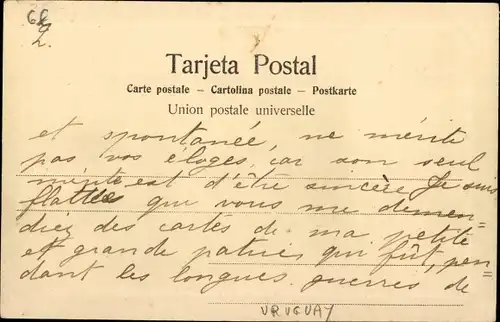 68
2.
Tarjeta Postal
Carte postale – Cartolina postale – Postkarte
Union postale universelle
et spontanée, ne mérite
pas vos éloges, car son seul
mérite est d'être sincère Je suis
flattée que vous me deman-
diez des cartes de ma petite
et grande patrie, qui fût, pen-
dant les longues guerres de
URUGUAY